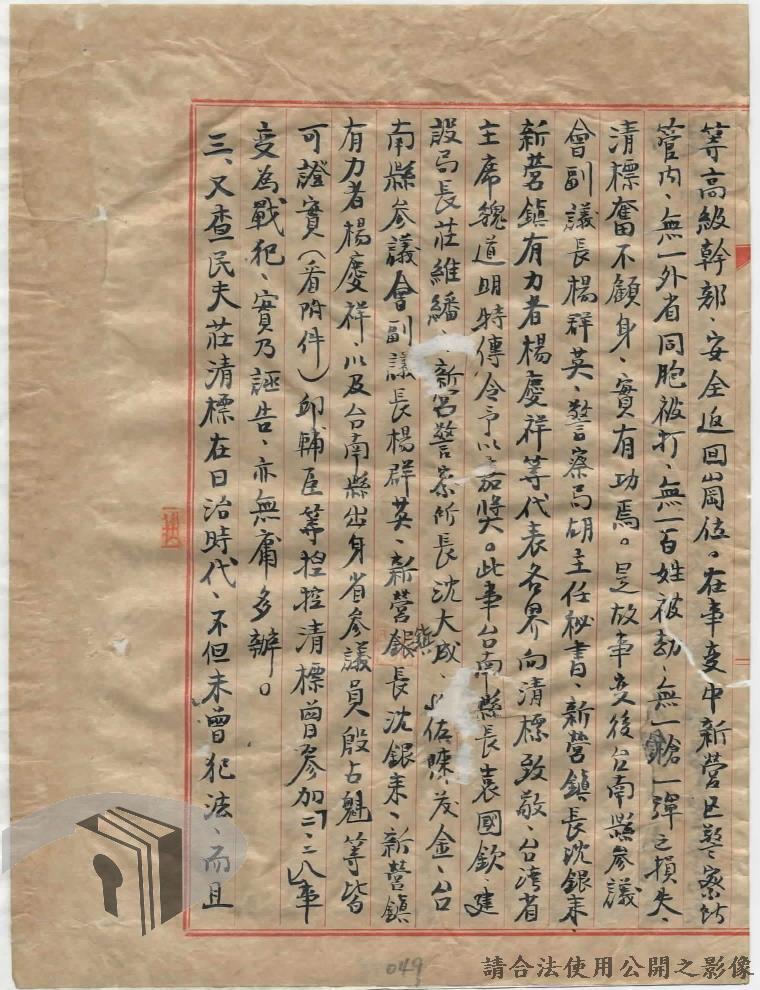 等高級幹部、安全返回崗位。在事變中新營區警察所
管內、無一外省同胞被打、無一百姓被劫、無一鎗一彈之損失、
清標奮不顧身、實有功焉。是故事变後台南縣參議
會副議長楊群英、警察局胡主任秘書、新營鎮長沈銀來、
新營鎮有力者楊慶祥等代表各界向清標致敬、台湾省
主席魏道明特傳令予以嘉獎。此事台南縣長袁國欽、建
設局長莊維繙、新営警察所長沈大成、佐陳茂金、台
南縣參議會副議長楊群英、新營鎮長沈銀来、新營鎮
有力者楊慶祥、以及台南縣出身省參議員殷占魁等皆
可證實(看附件)邱輔臣等捏控清標曾參加二、二八事
变為戰犯、實乃誣告、亦無庸多辦。
三、又查民夫莊清標在日治時代、不但未曾犯法、而且
049
請合法使用公開之影像